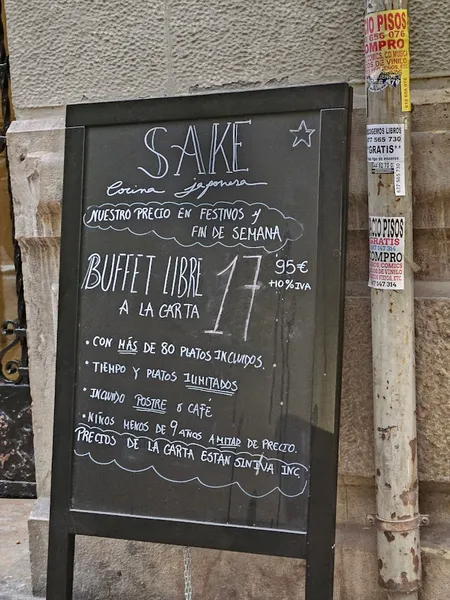 SAKE
Cocina japonesa
NUESTRO PRECIO EN FESTIVOS Y
FIN DE SEMANA
BUFFET LIBRE
A LA CARTA
17 95€
+10%IVA
• CON MÁS DE 80 PLATOS INCLUIDOS.
• TIEMPO Y PLATOS ILIMITADOS
• INCLUIDO POSTRE O CAFE
• NIÑOS MENOS DE 9 AÑOS A MITAD DE PRECIO.
PRECIOS DE LA CARTA ESTAN SIN IVA INC.
PISOS
656 076
OMPRO
COMICS, CD MUSICA
OS DE VINILO
OGEMOS LIBROS
565 730
*GRATIS**
CIO PISOS
GRATIS
OMPRO
COMICS
DE VINILO
547 314